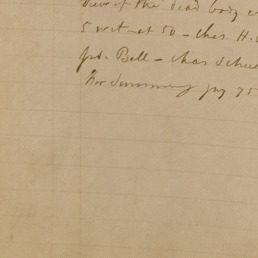 View of the dead body
5 wit at 50 - Chas. H.
Jno. Bell - Chas Schu
For Summoning jury 75